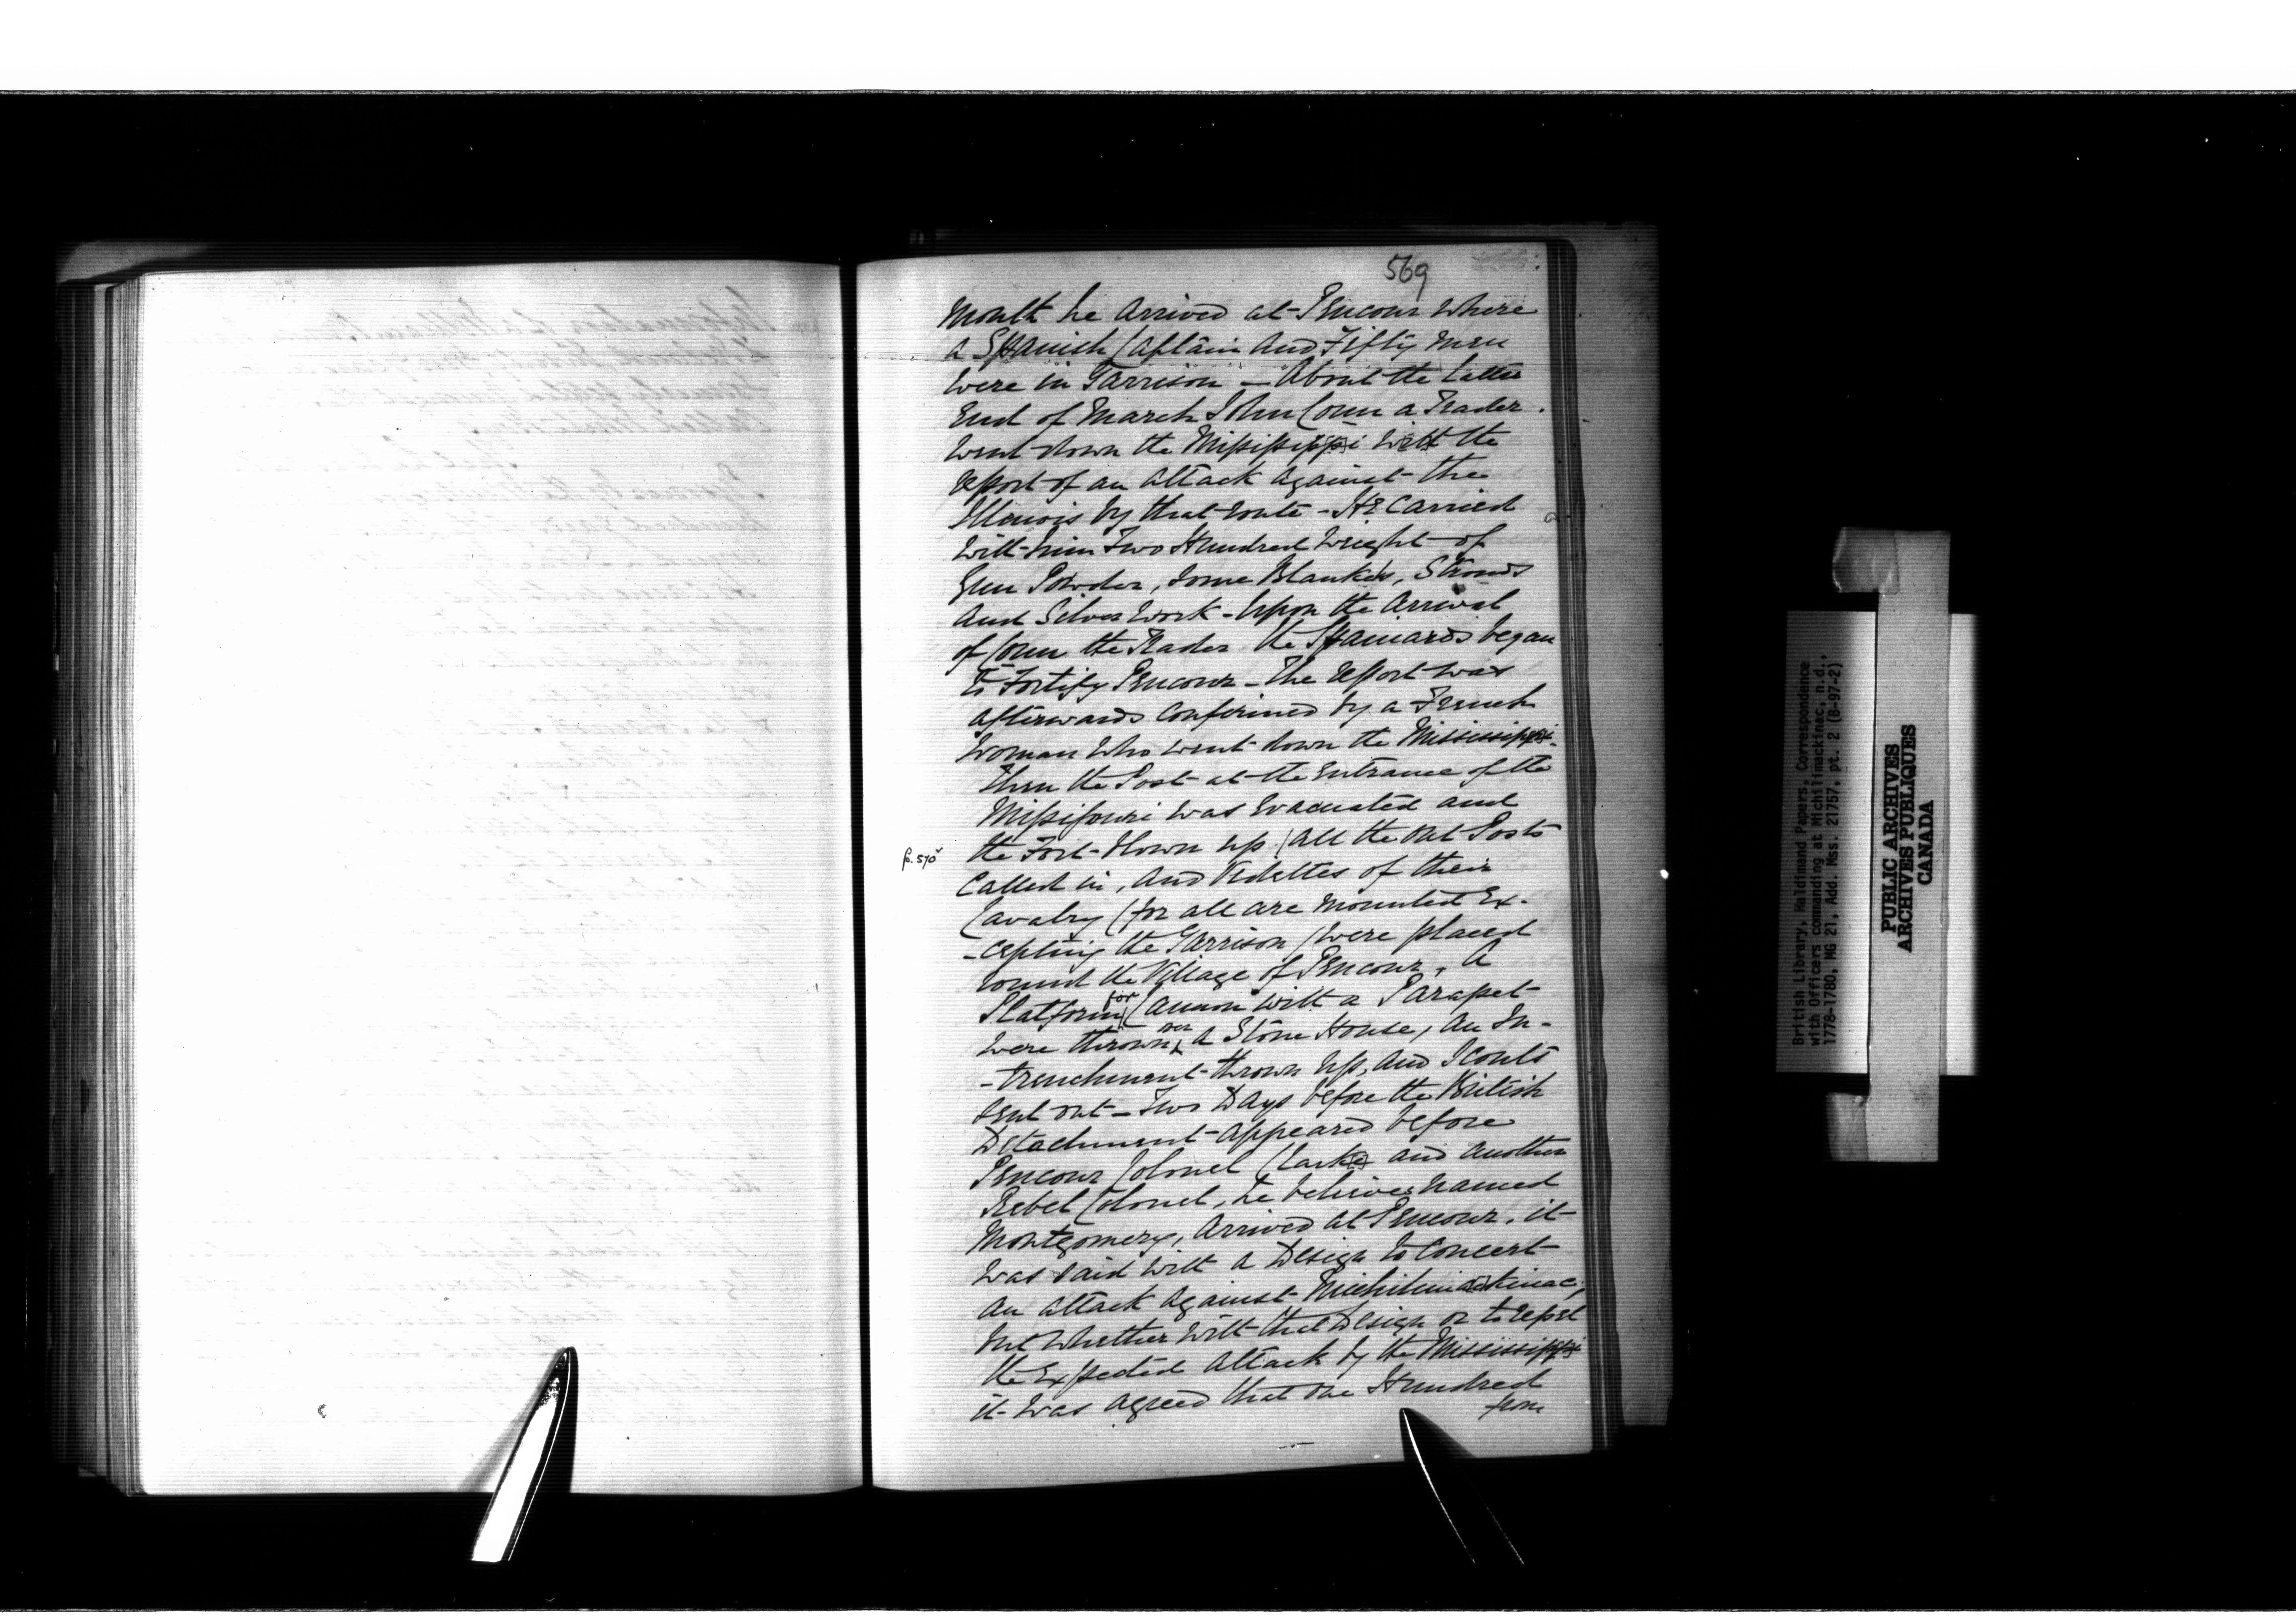 569
Month he arrived at Pencour where
a Spanish Captain and Fifty Men
were in Garrison – About the Latter
End of March John Conn a Trader
went down the Missisippi with the
report of an attack against the
Illinois by that route – He carried
with him Two Hundred Weight of
Gun Powder, some Blankets, Strouds
and Silver work – Upon the arrival
of Conn the Trader the Spaniards began
to Fortify Pencour – The report was
afterwards confirmed by a French
Woman who went down the Mississippi.
Then the Post at the Entrance of the
Missisouri was Evacuated and
fo. 570v
the Fort blown up, all the out Posts
called in, and Vedettes of their
Cavalry (for all are mounted Ex-
-cepting the Garrison) were placed
round the Village of Pencour, A
Platform for Cannon with a Parapet
were thrown over a Stone House, an In-
-trenchment thrown up, and Scouts
sent out – Two Days before the British
Detachment appeared before
Pencour Colonel Clarke and another
Rebel Colonel, he believes named
Montgomery, arrived at Pencour, it
was said with a Design to concert
an attack against Michilimackinac,
but whether with that Design or to repel
the Expected attack by the Mississippi
it was agreed that one Hundred
from
British Library, Haldimand Papers, Correspondence
with Officers commanding at Michilimackinac, n.d.,
1778-1780, MG 21, Add. Mss. 21757, pt. 2 (B-97-2)
PUBLIC ARCHIVES
ARCHIVES PUBLIQUES
CANADA